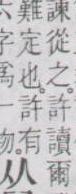 諫從之。許讀爾
難定也。許有
字爲一物。
从